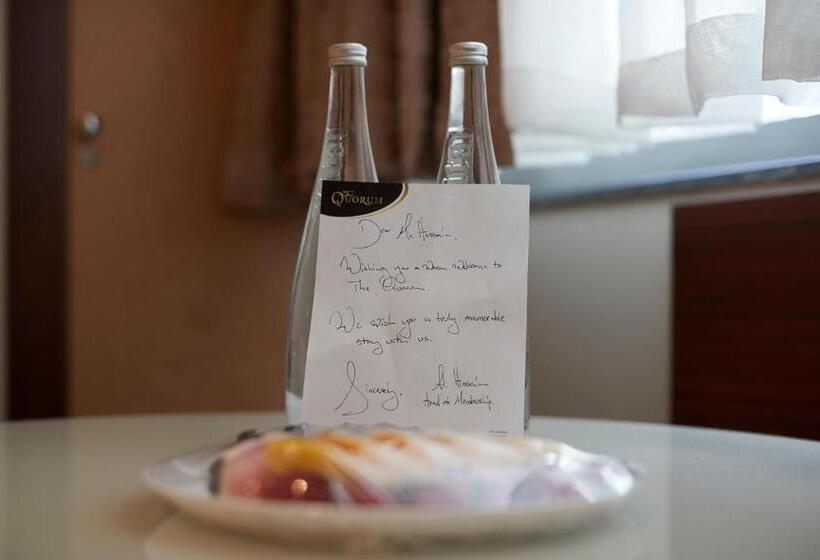 QUORUM
Dear Mr. Hussain,
Wishing you a warm welcome to
The Quorum.
We wish you a truly memorable
stay with us.
Sincerely,
Ali Hussain
Head of Membership